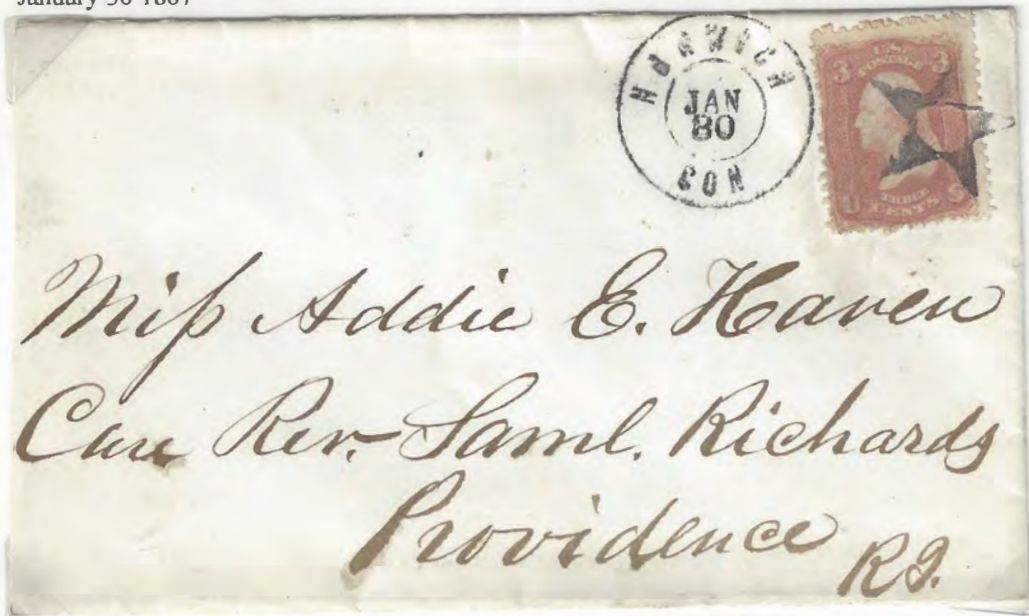 January 30 1867
NORWICH
JAN
30
CON
3 U.S. 3
POSTAGE
THREE
CENTS
U S
Miſs Addie E. Haven
Care Rev. Saml. Richards
Providence
R.I.